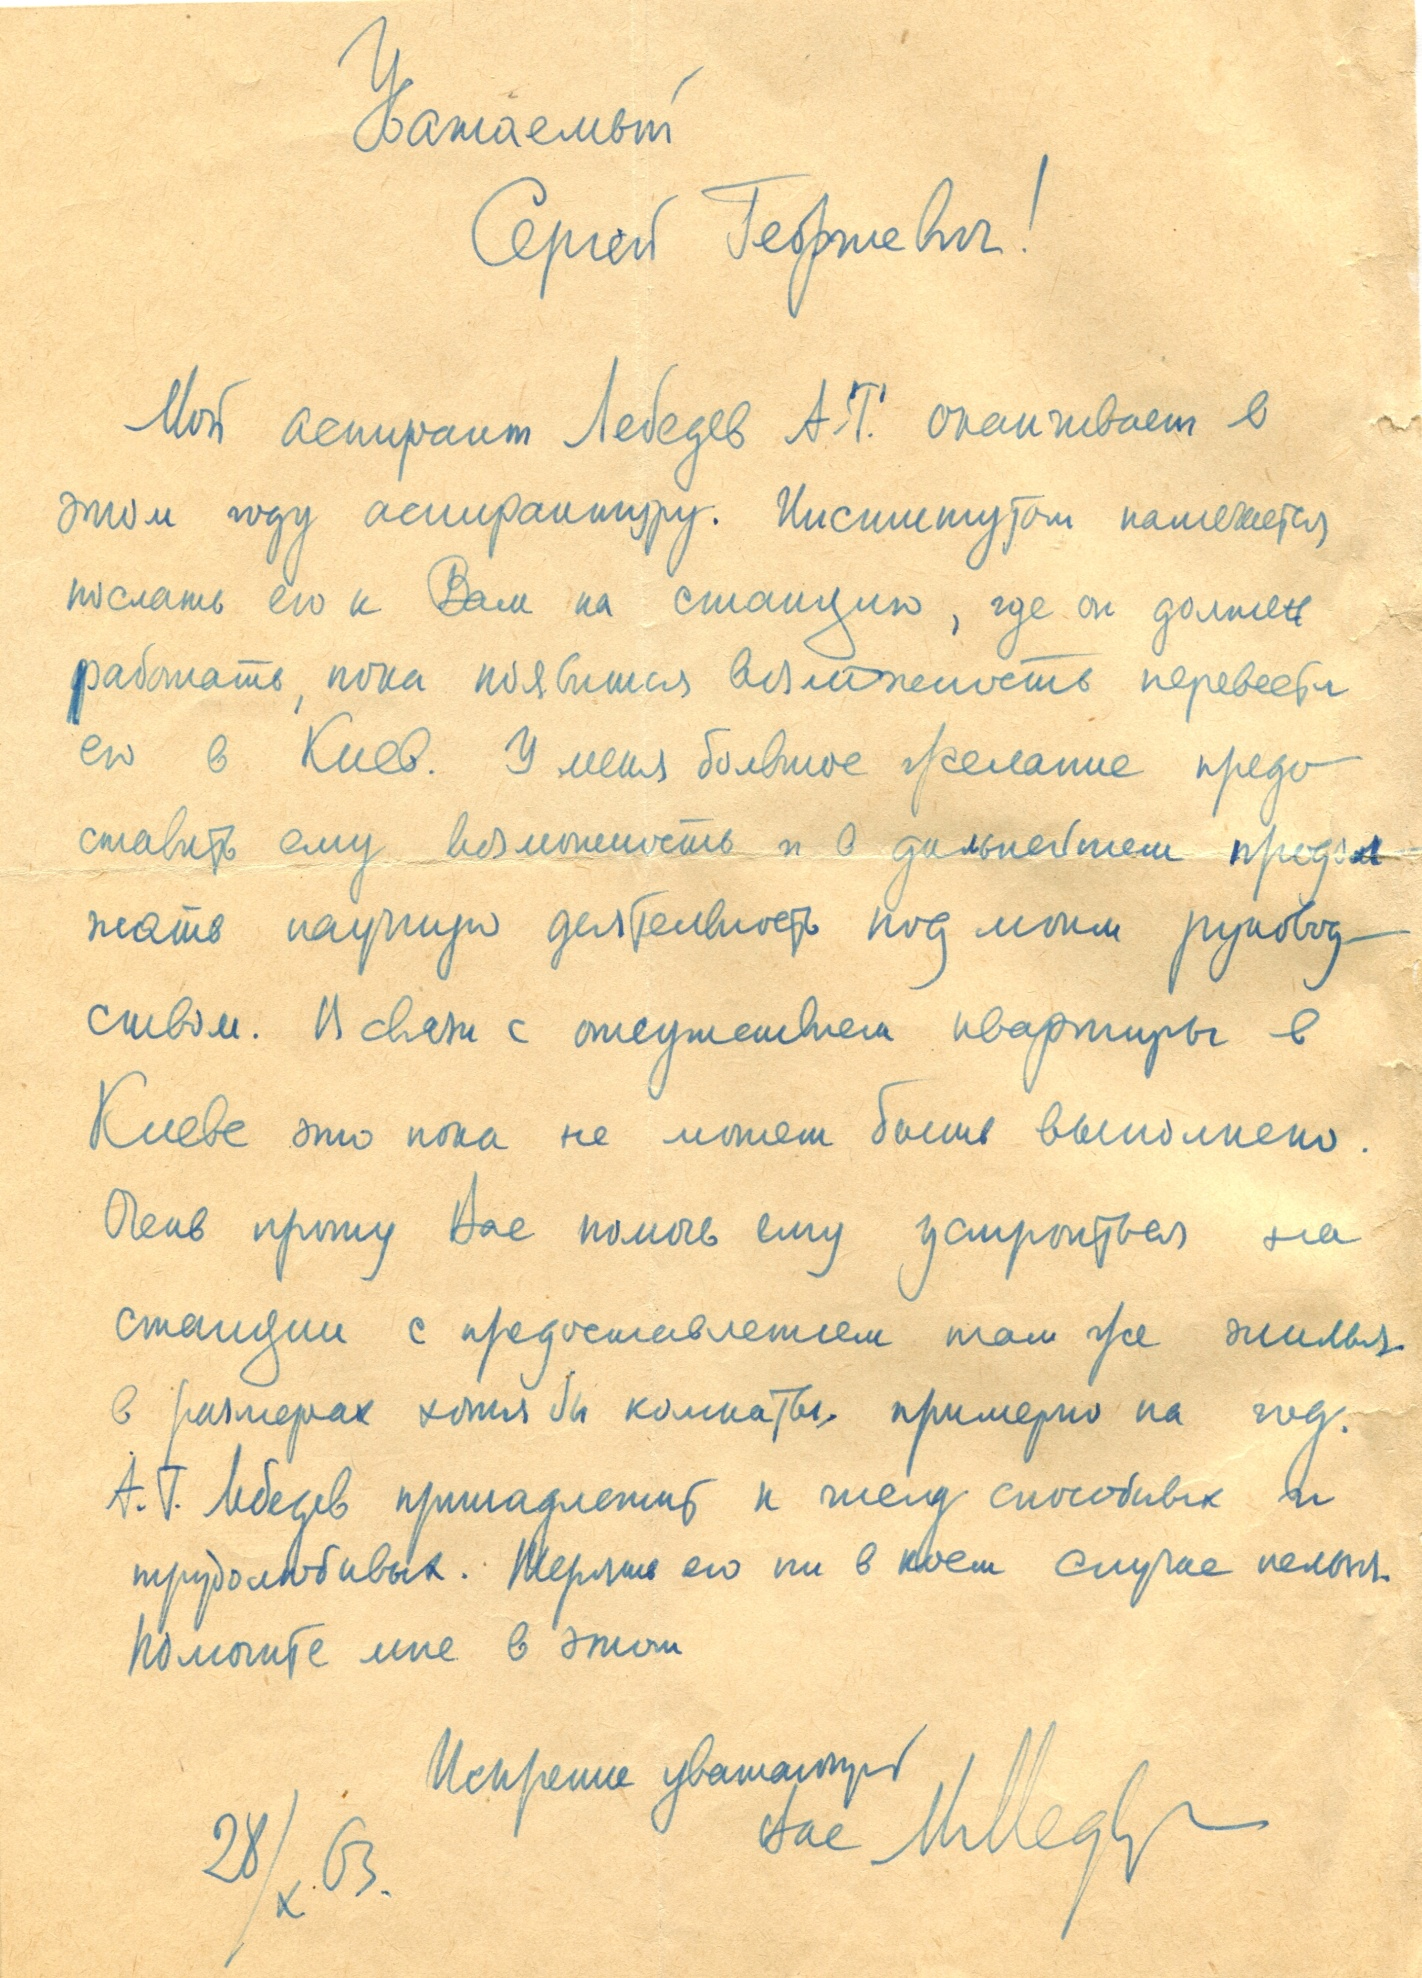 Уважаемый
Сергей Георгиевич!
Мой аспирант Лебедев А.Т. оканчивает в
этом году аспирантуру. Институтом намечается
послать его к Вам на станцию, где он должен
работать, пока появится возможность перевести
его в Киев. У меня большое желание предо-
ставить ему возможность и в дальнейшем продол
жать научную деятельность под моим руковод-
ством. В связи с отсутствием квартиры в
Киеве это пока не может быть выполнено.
Очень прошу Вас помочь ему устроиться на
станции с предоставлением там же жилья
в размерах хотя бы комнаты, примерно на год.
А.Т. Лебедев принадлежит к числу способных и
трудолюбивых. Терять его ни в коем случае нельзя.
Помогите мне в этом
Искренне уважающий
Вас
28/X.63.